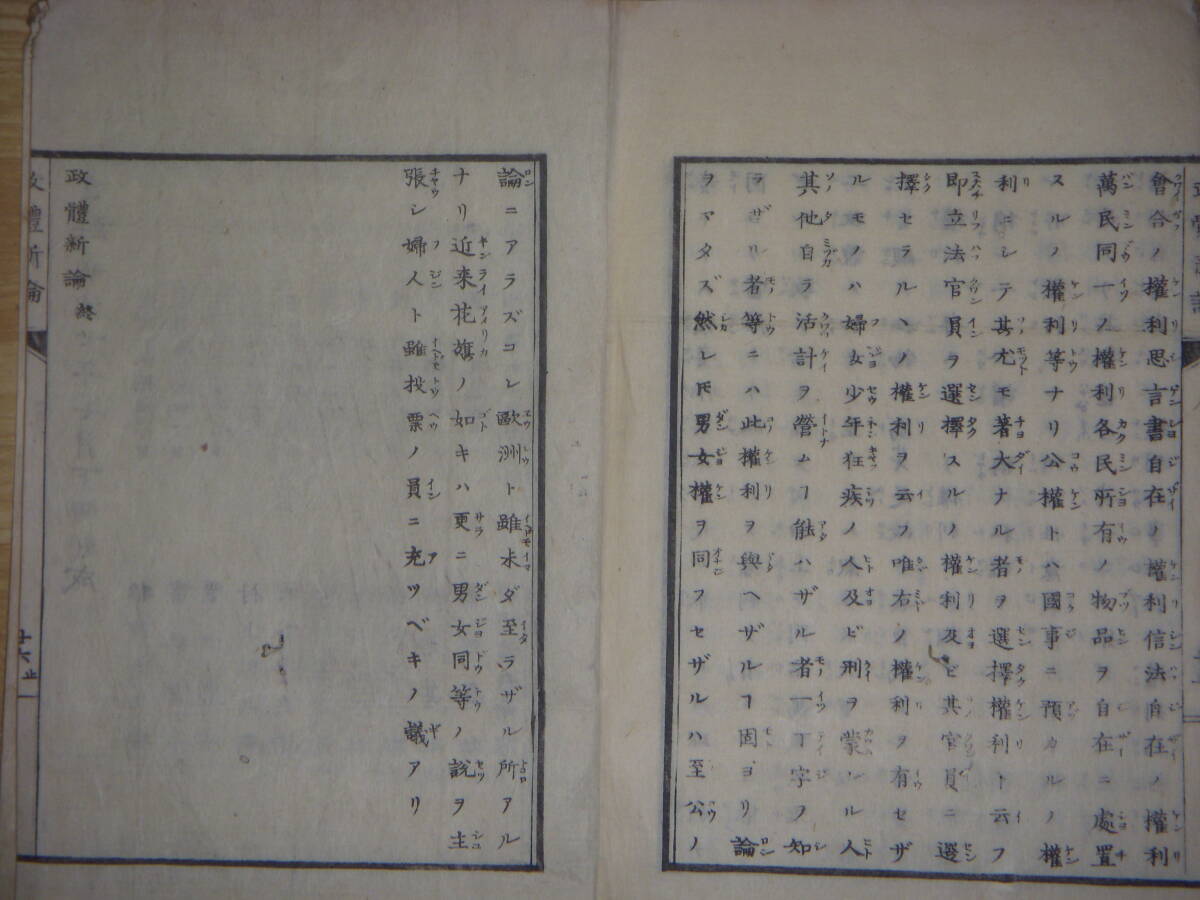 會合ノ權利思言書自在ノ權利信法自在ノ權利
萬民同一ノ權利各民所有ノ物品ヲ自在ニ處置
スルノ權利等ナリ公權トハ國事ニ預カルノ權
利ニシテ其尤モ著大ナル者ヲ選擇權利ト云フ
即立法官員ヲ選擇スルノ權利及ビ其官員ニ選
擇セラルヽノ權利ヲ云フ唯右ノ權利ヲ有セザ
ルモノハ婦女少年狂疾ノ人及ビ刑ヲ蒙レル人
其他自ラ活計ヲ營ムヿ能ハザル者一丁字ヲ知
ラザル者等ニハ此權利ヲ與ヘザルヿ固ヨリ論
ヲマタズ然レ𪜈男女權ヲ同フセザルハ至公ノ
論ニアラズコレ歐洲ト雖未ダ至ラザル所アル
ナリ近来花旗ノ如キハ更ニ男女同等ノ説ヲ主
張シ婦人ト雖投票ノ員ニ充ツベキノ議アリ
政體新論 終
政體新論
廿六止